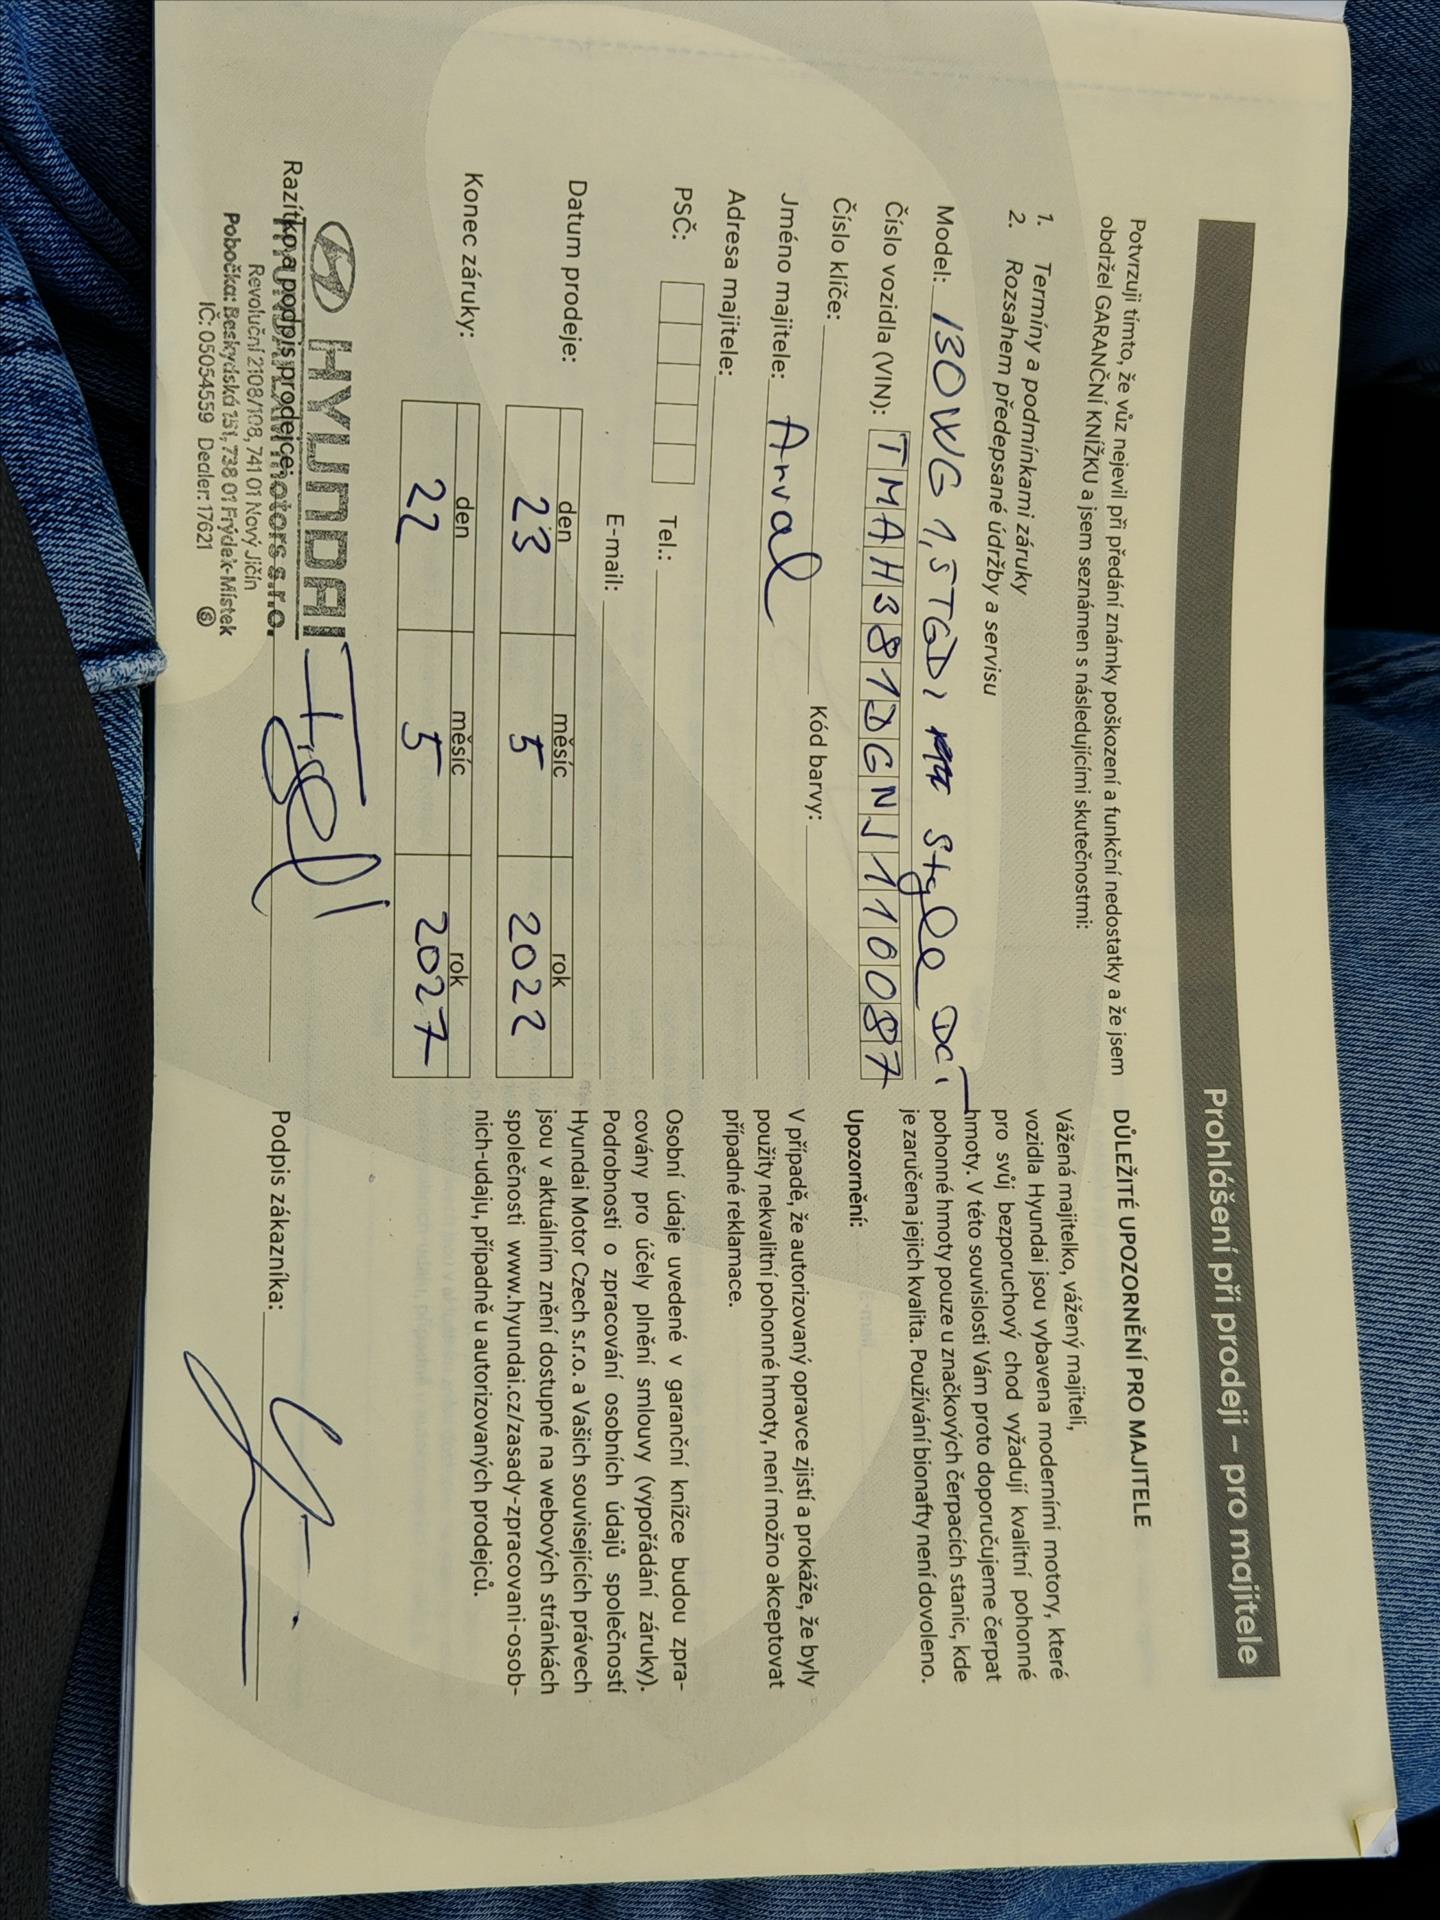 Prohlášení při prodeji – pro majitele
Potvrzuji tímto, že vůz nejevil při předání známky poškození a funkční nedostatky a že jsem
obdržel GARANČNÍ KNÍŽKU a jsem seznámen s následujícími skutečnostmi:
1. Termíny a podmínkami záruky
2. Rozsahem předepsané údržby a servisu
Model: I30 WG 1,5 TGDI Style DCT
Číslo vozidla (VIN): TMAH381DGNJ110087
Číslo klíče: Kód barvy:
Jméno majitele: Arval
Adresa majitele:
PSČ: Tel.:
E-mail:
Datum prodeje: den 23 měsíc 5 rok 2022
Konec záruky: den 22 měsíc 5 rok 2027
HYUNDAI
Razítko a podpis prodejce:
motors s.r.o.
Revoluční 2108/108, 741 01 Nový Jičín
Pobočka: Beskydská 151, 738 01 Frýdek-Místek
IČ: 05054559 Dealer: 17621 6
DŮLEŽITÉ UPOZORNĚNÍ PRO MAJITELE
Vážená majitelko, vážený majiteli,
vozidla Hyundai jsou vybavena moderními motory, které
pro svůj bezporuchový chod vyžadují kvalitní pohonné
hmoty. V této souvislosti Vám proto doporučujeme čerpat
pohonné hmoty pouze u značkových čerpacích stanic, kde
je zaručena jejich kvalita. Používání bionafty není dovoleno.
Upozornění:
V případě, že autorizovaný opravce zjistí a prokáže, že byly
použity nekvalitní pohonné hmoty, není možno akceptovat
případné reklamace.
Osobní údaje uvedené v garanční knížce budou zpra-
covány pro účely plnění smlouvy (vypořádání záruky).
Podrobnosti o zpracování osobních údajů společností
Hyundai Motor Czech s.r.o. a Vašich souvisejících právech
jsou v aktuálním znění dostupné na webových stránkách
společnosti www.hyundai.cz/zasady-zpracovani-osob-
nich-udaju, případně u autorizovaných prodejců.
Podpis zákazníka: